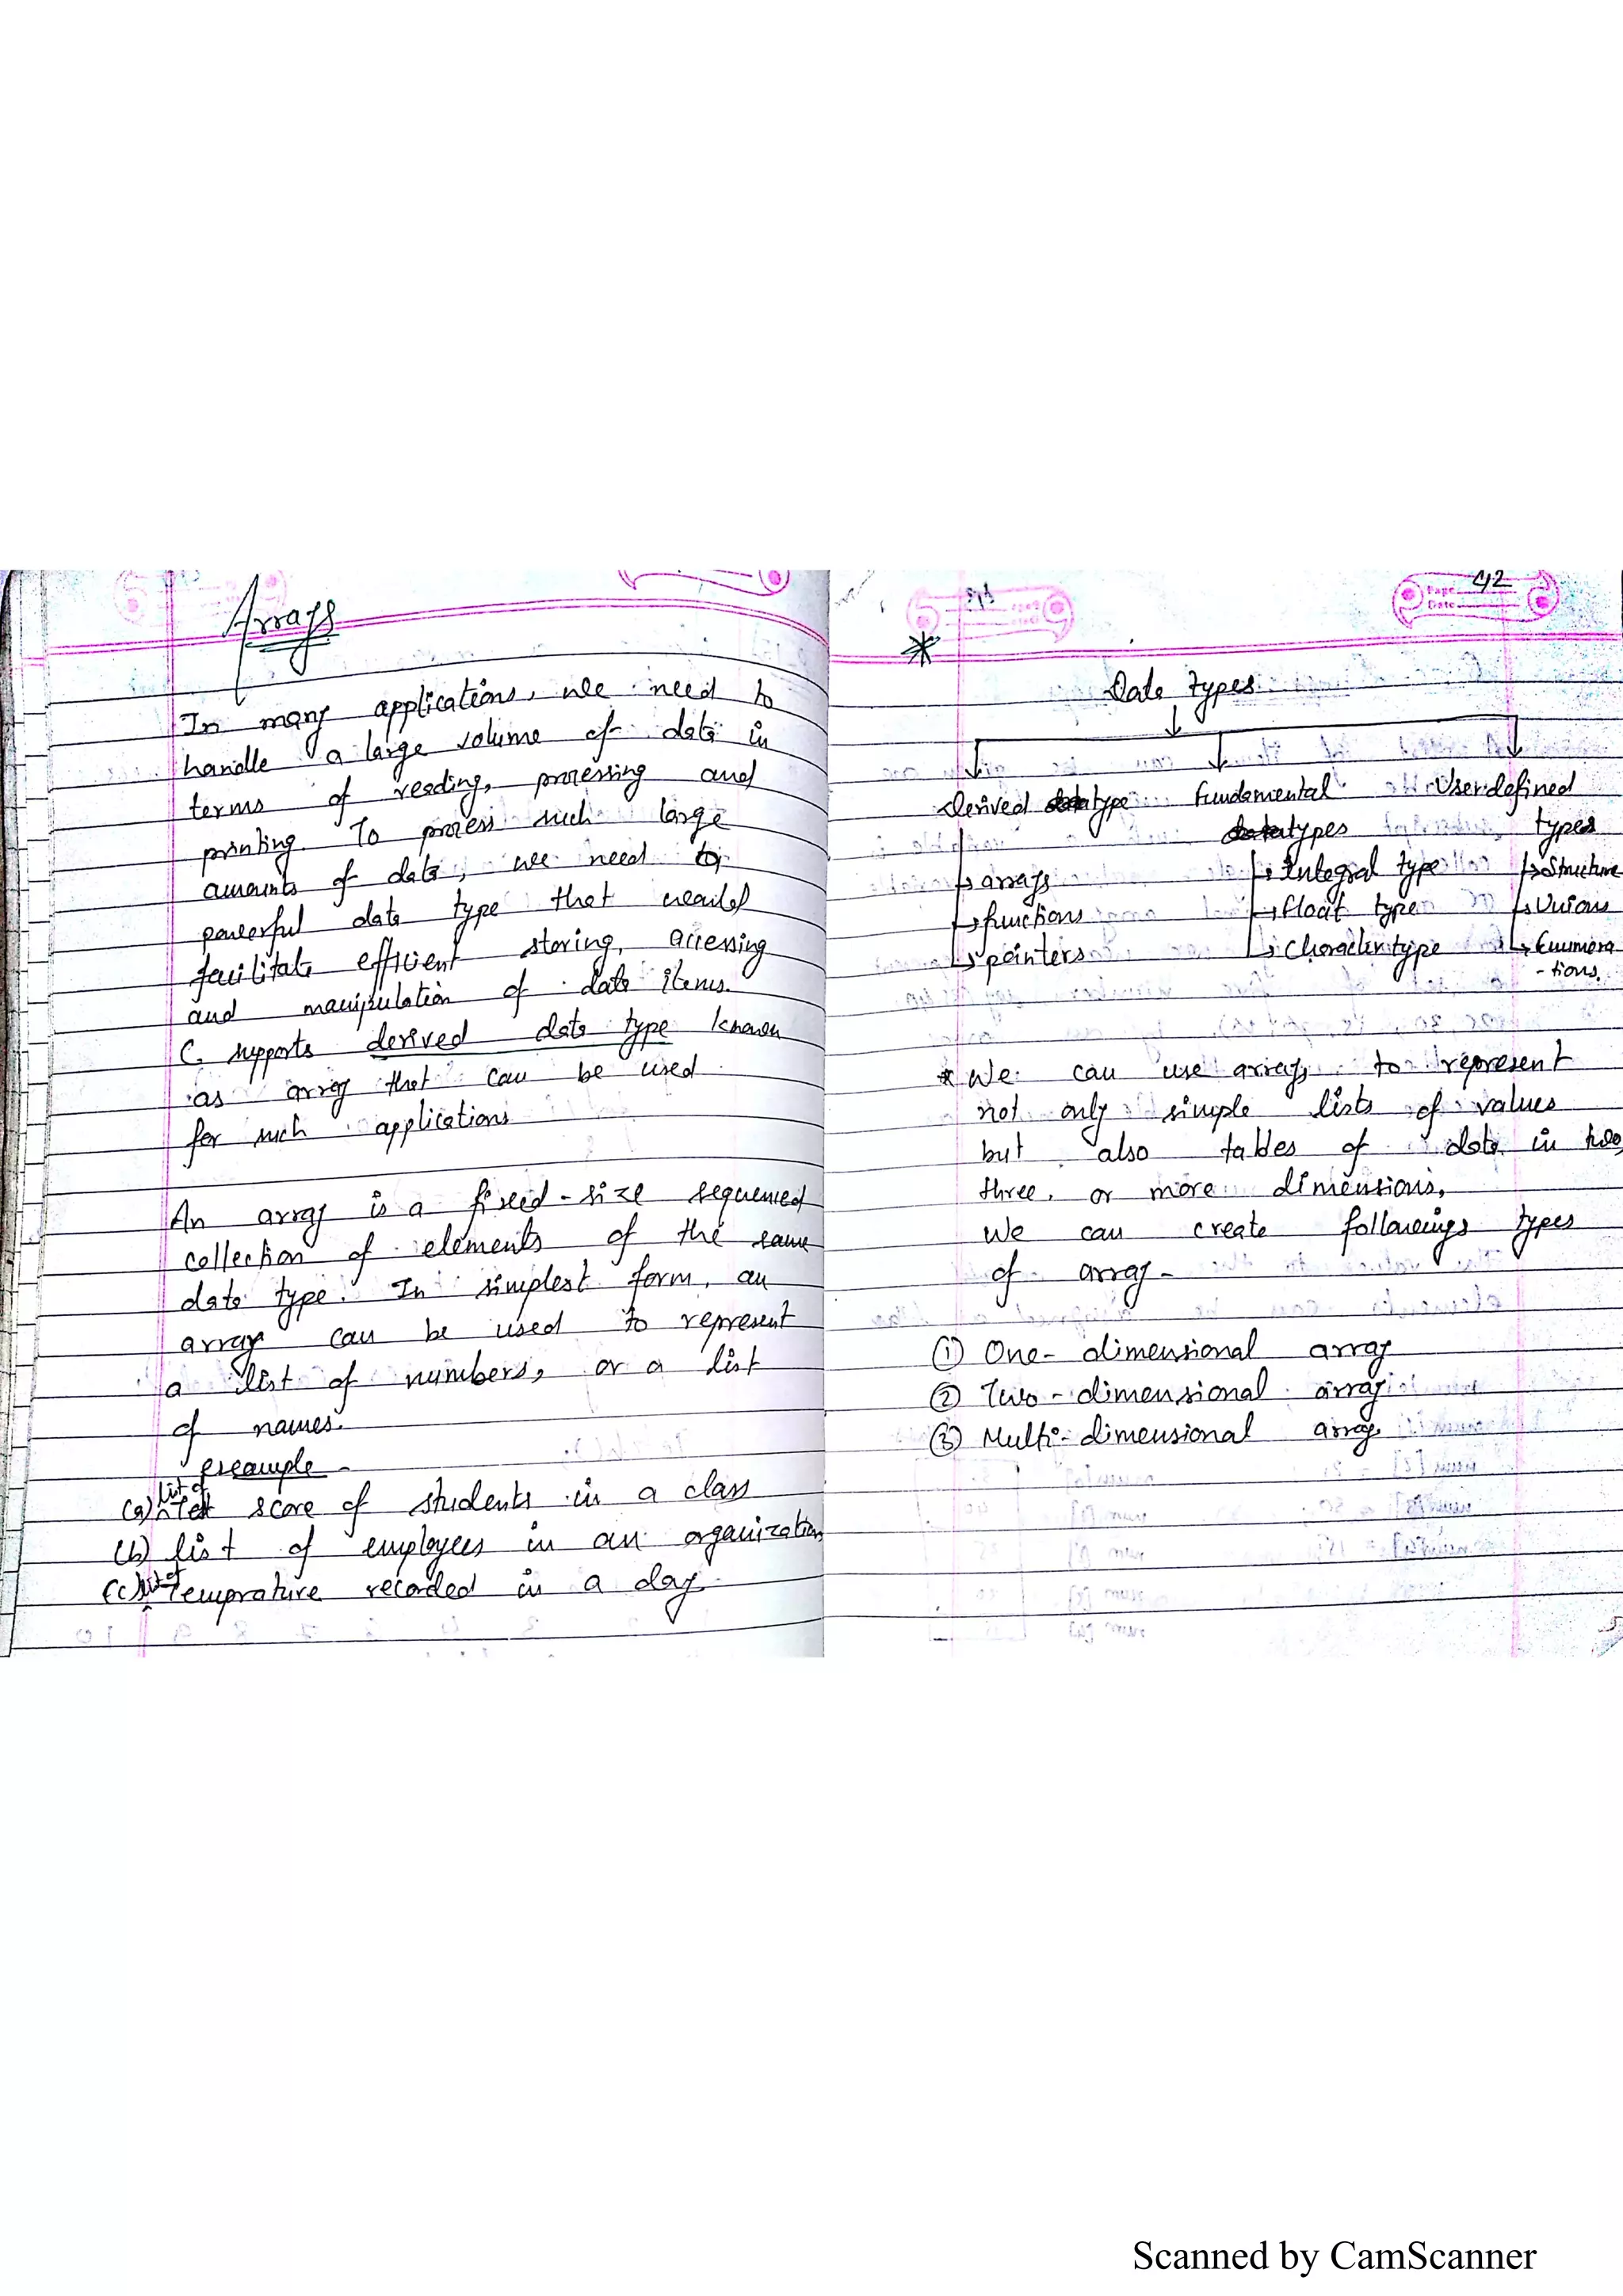 Arrays
In many applications, we need to
handle a large volume of data in
terms of reading, processing and
printing. To process such large
amounts of data, we need to
powerful data type that would
facilitate efficient storing, accessing
and manipulation of data items.
C supports derived data type known
as array that can be used
for such applications
An array is a fixed-size sequenced
collection of elements of the same
data type. In simplest form, an
array can be used to represent
a list of numbers, or a list
of names.
example -
list of
(a) Test score of students in a class
(b) list of employees in an organization
(c) list of Temprature recoded in a day.
42
Page
Date
*
Data types
Derived type Fundamental User defined
types types
arrays Integral type Structure
functions Float type Unions
pointers Character type Enumera
-tions.
* We can use arrays to represent
not only simple lists of values
but also tables of data in two,
three, or more dimensions.
We can create followings types
of array-
① One-dimensional array
② Two-dimensional array
③ Multi-dimensional array.
Scanned by CamScanner